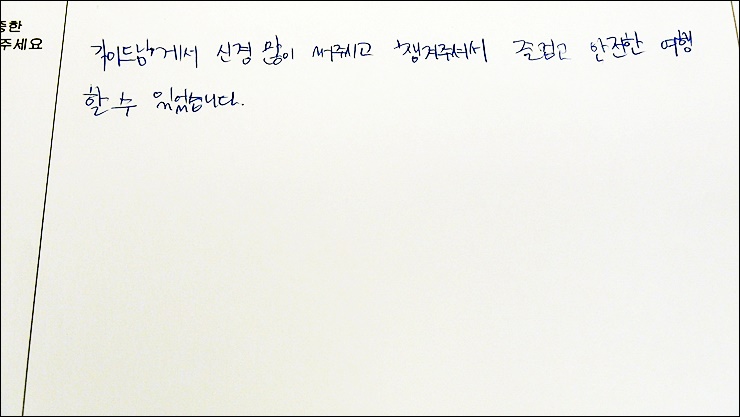 중한
주세요
가이드님께서 신경 많이 써주시고 챙겨주셔서 즐겁고 안전한 여행
할 수 있었습니다.